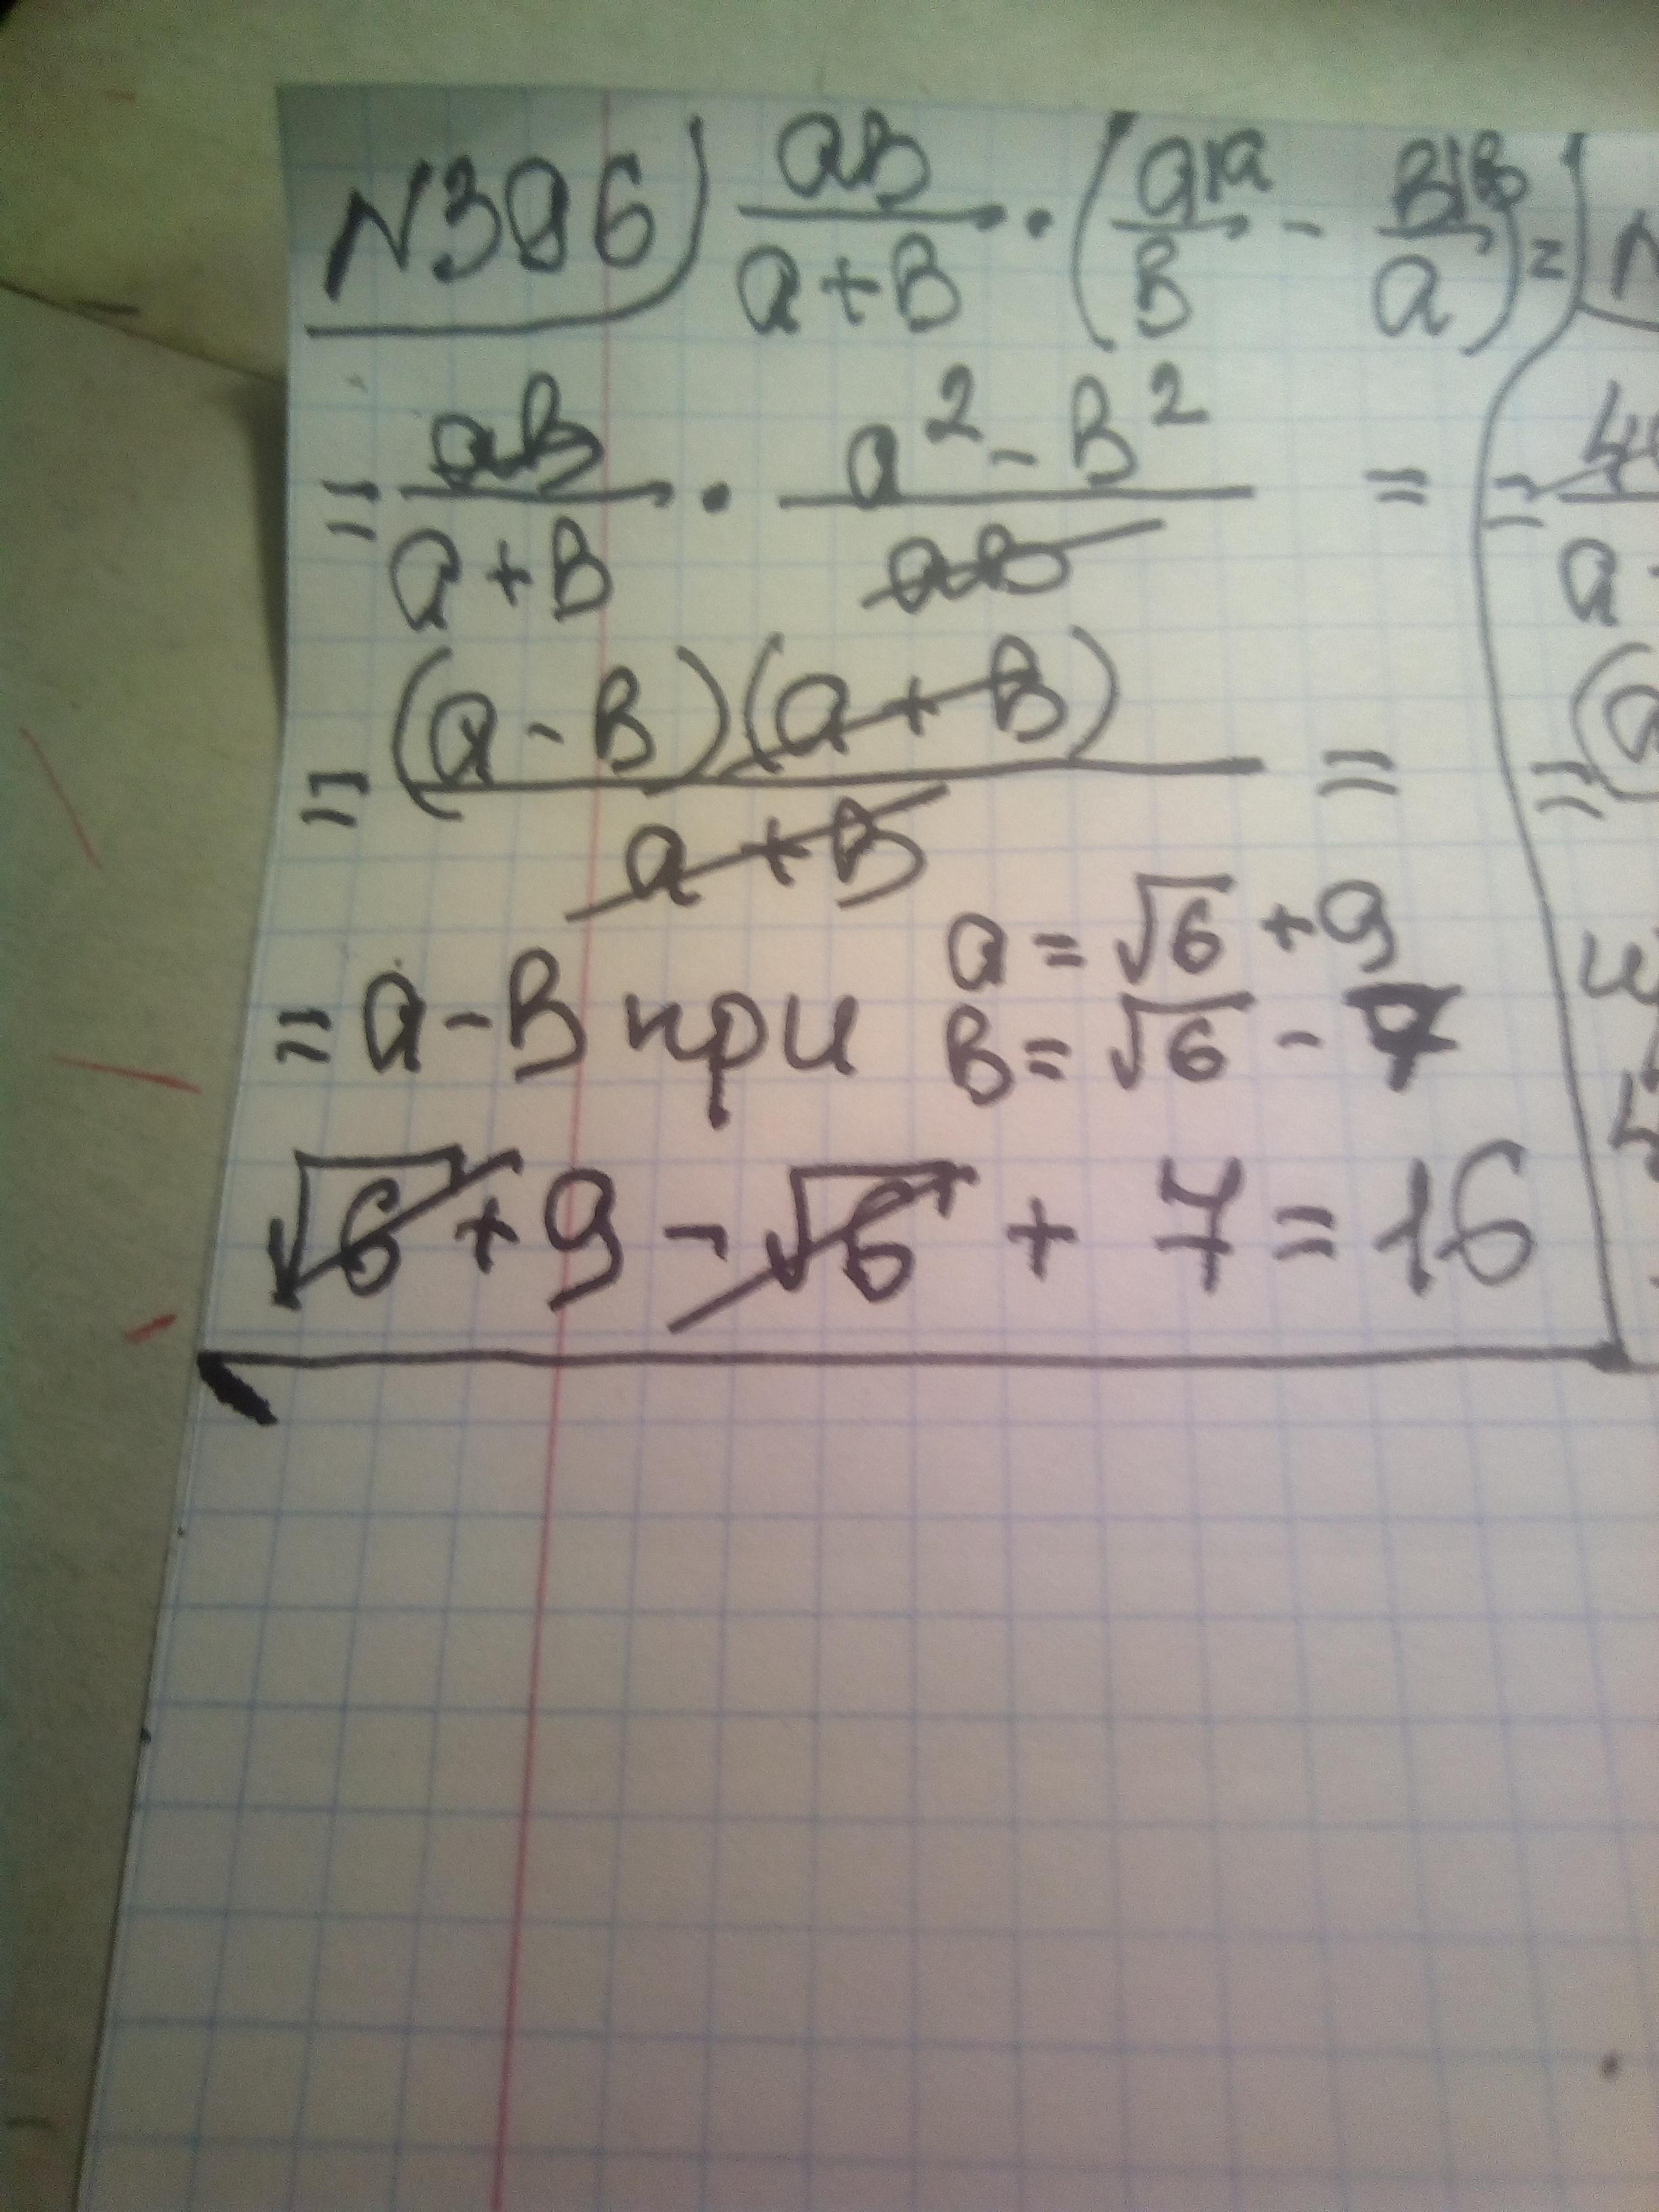 N396) ab/(a+b) · (a|a/b - b|b/a) =
= ab/(a+b) · (a² - b²)/ab =
= (a-b)(a+b)/(a+b) =
= a-b при a = √6 + 9
b = √6 - 7
√6 + 9 - √6 + 7 = 16